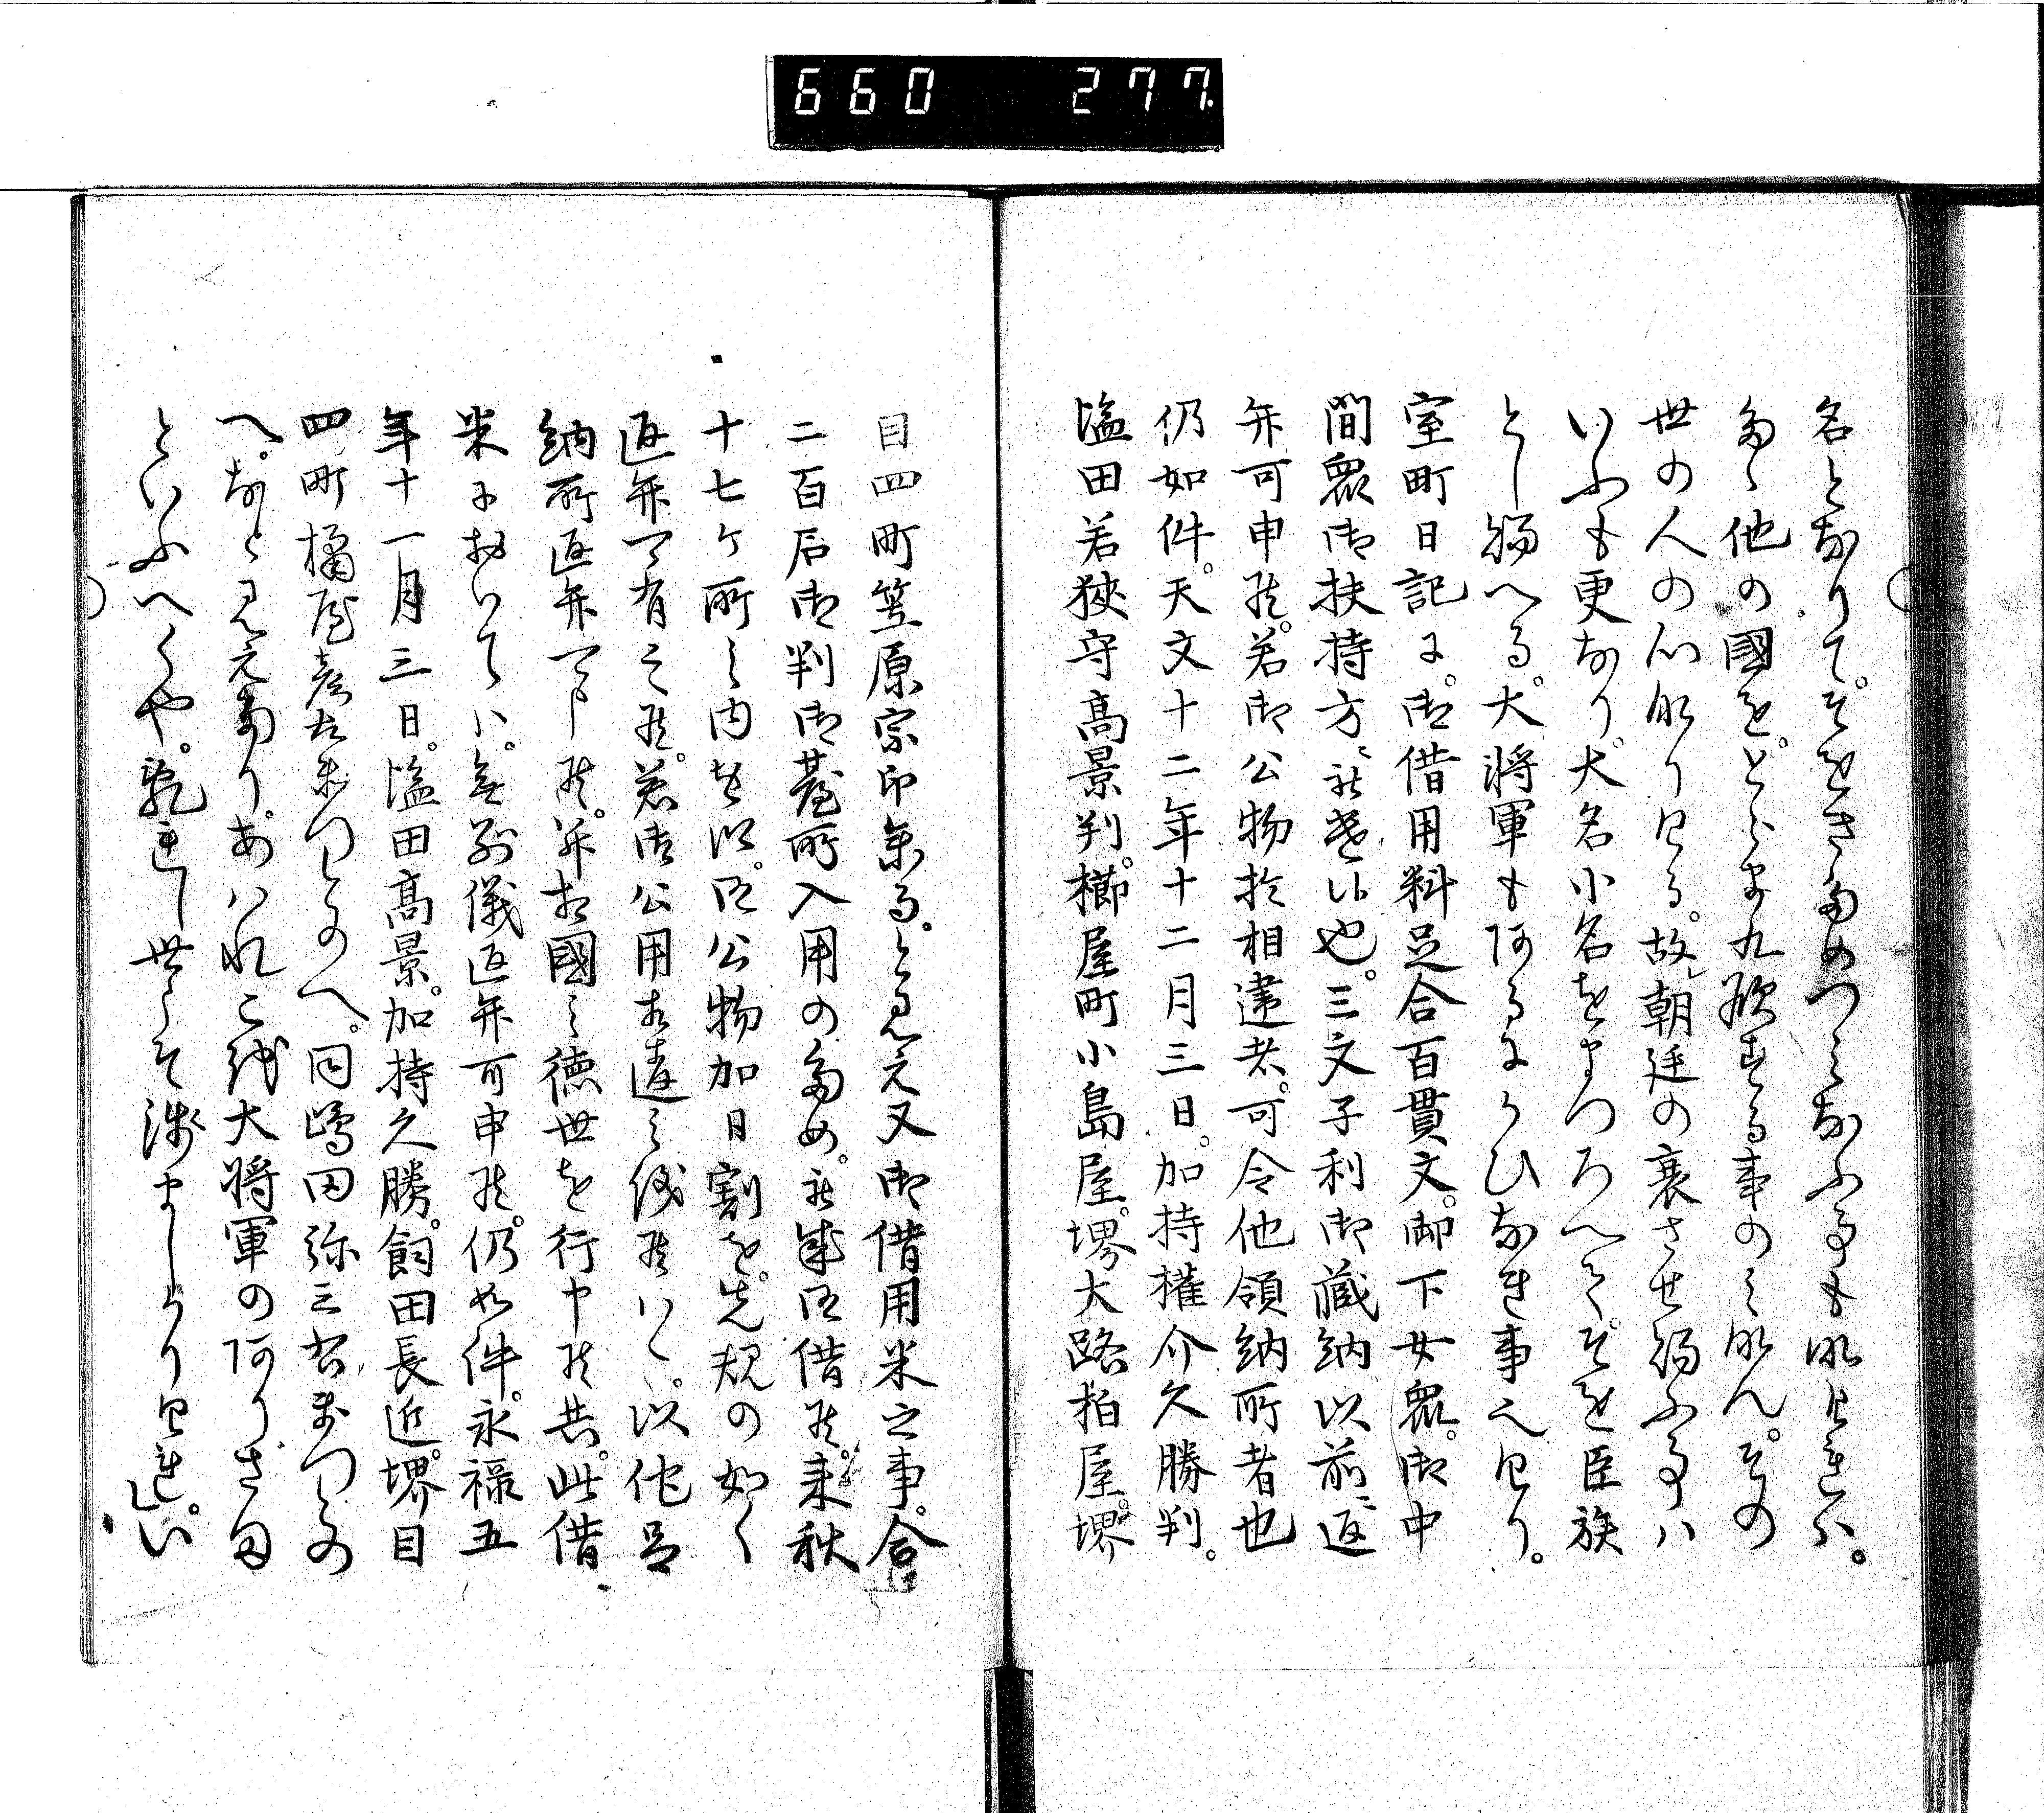 660 277
名となりて。それをさためつくなふ事も泚けれハ。
たゝ他の國を。とらまれ欲する事のミ那ん。その
世の人の心那りける。故朝廷の衰させ給ふ事ハ
いふも更なり。大名小名をまつろへて。それを臣族
とし給へる。大将軍も阿るにかひなき事也けり。
室町日記に。御借用料足合百貫文。御下女衆。御中
間衆御扶持方ニ被遣候也。三文子利御藏納以前ニ返
弁可申候。若御公物於相違者。可令他領納所者也
仍如件。天文十二年十二月三日。加持權介久勝判。
塩田若狹守高景判。櫛屋町小島屋。堺大路柏屋。堺
目四町笠原宗印参る。と見え又御借用米之事。合
二百石御判御臺所入用のため。被成御借候。来秋
十七ケ所之内を以。御公物加日割を。先規の如く
返弁可有之候。若御公用相違之儀候ハヽ。以他名
納所返弁可申候。并於國之徳世を行申候共。此借
米においてハ。無別儀返弁可申候。仍如件。永禄五
年十一月三日。塩田高景。加持久勝。飼田長近。堺目
四町橘屋彦左衛つとのへ。同嶋田弥三右衛つとの
へ。なと見えたり。あハれこ我大将軍の阿りさま
といふへくや。乱れし世こそ淺ましかりけれ。い